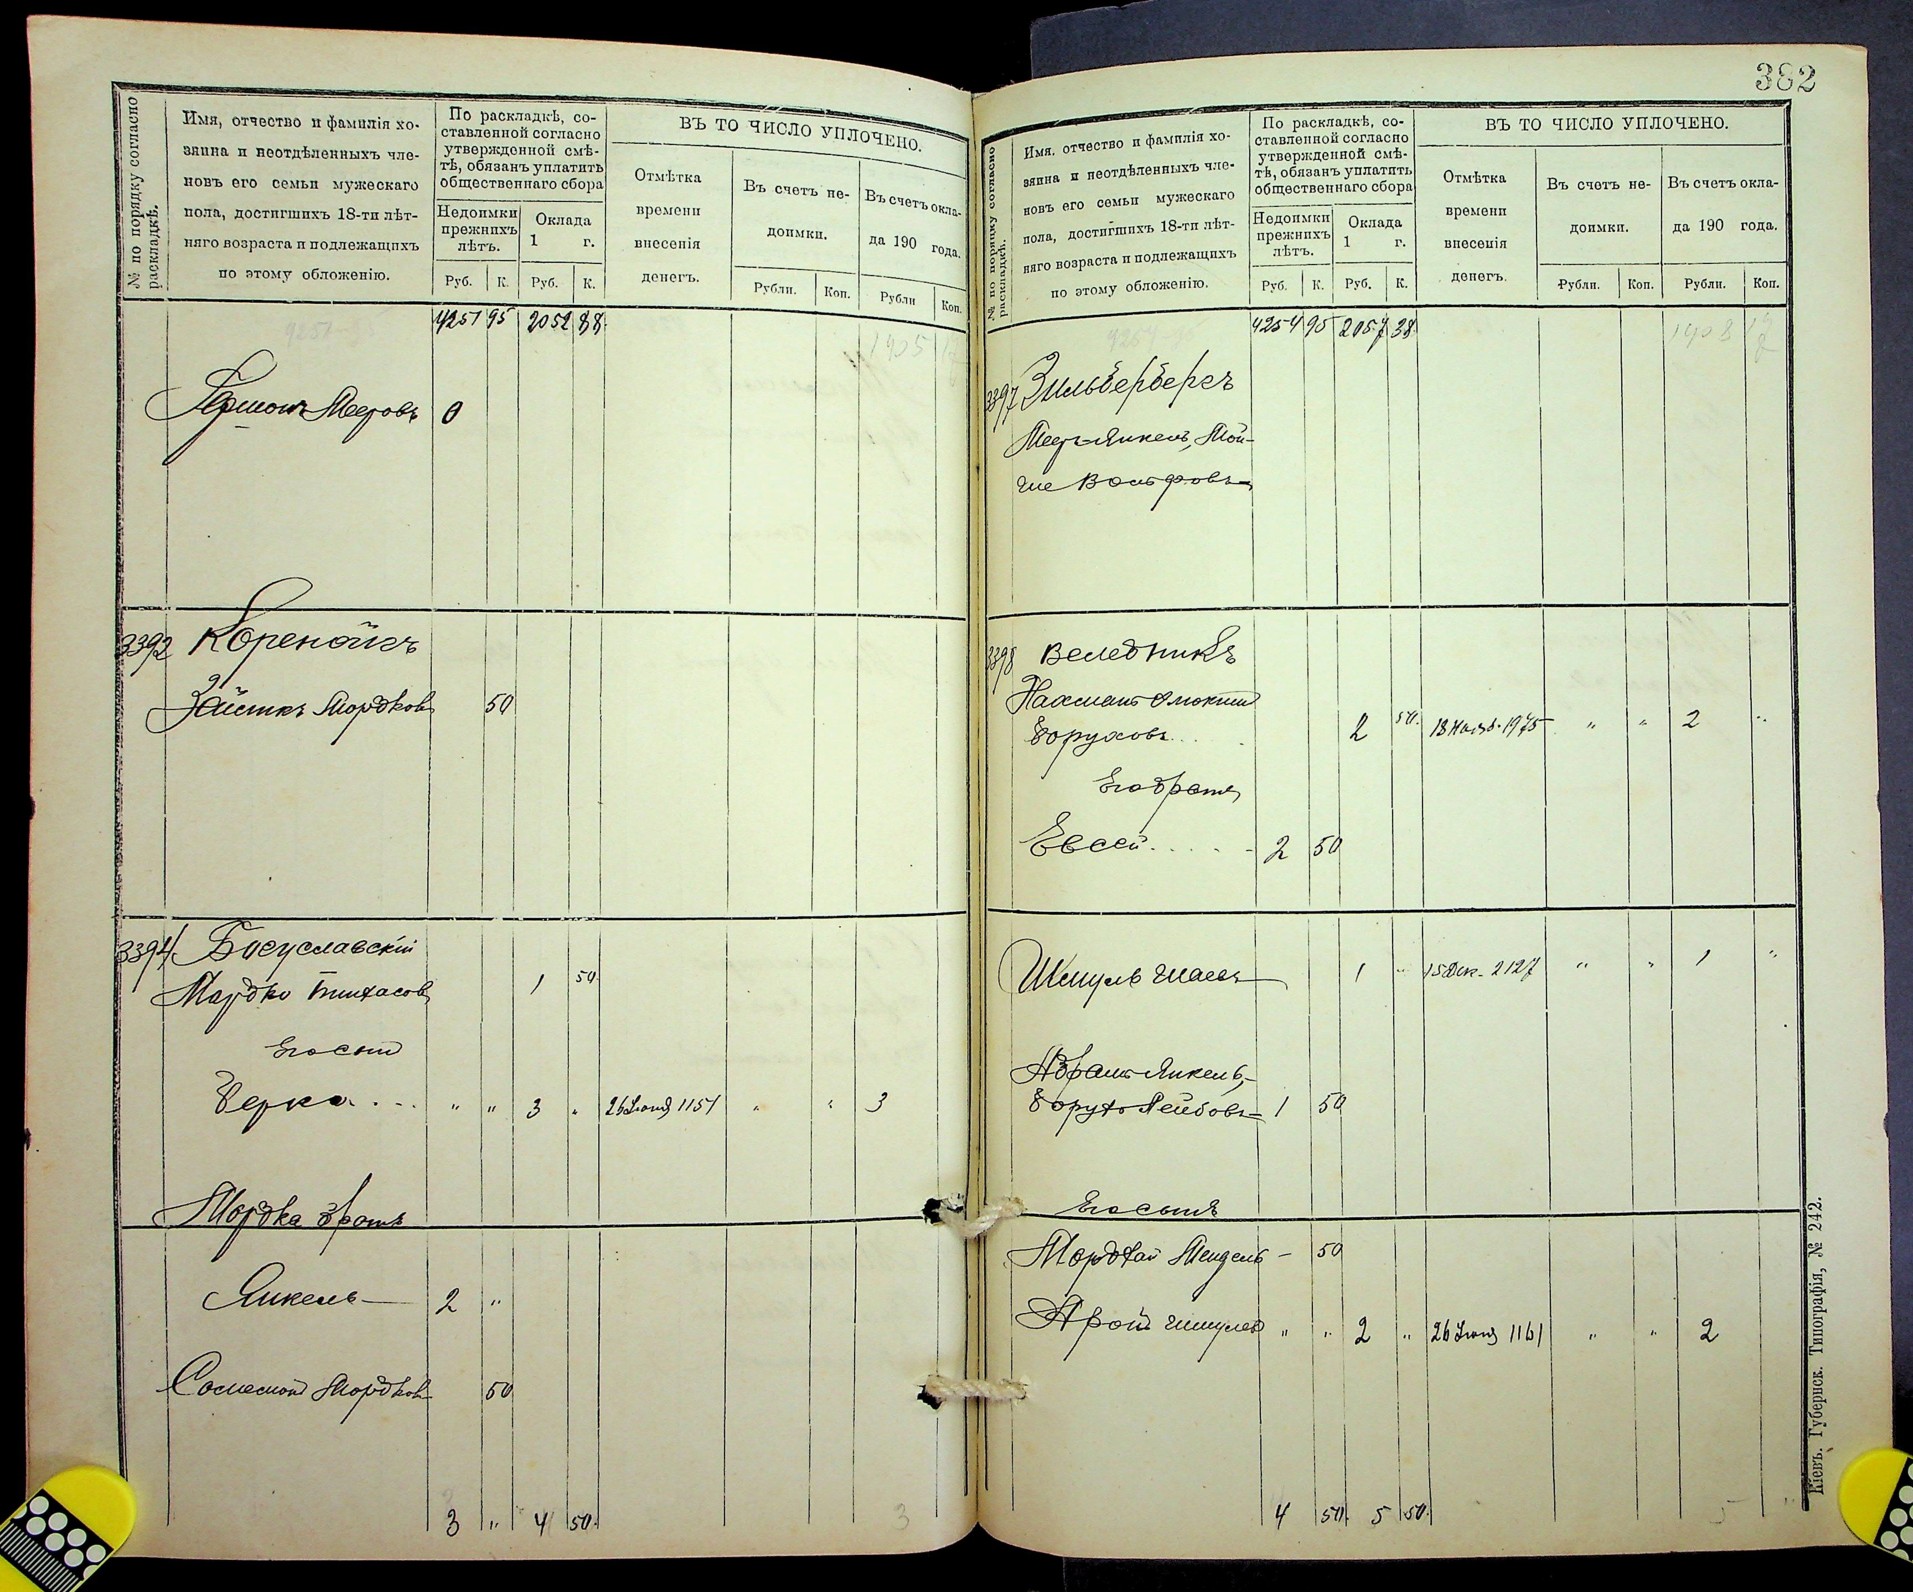 382
№ по порядку согласно раскладкѣ.
Имя, отчество и фамилія хо-
зяина и неотдѣленныхъ чле-
новъ его семьи мужескаго
пола, достигшихъ 18-ти лѣт-
няго возраста и подлежащихъ
по этому обложенію.
По раскладкѣ, со-
ставленной согласно
утвержденной смѣ-
тѣ, обязанъ уплатить
общественнаго сбора
Недоимки
прежнихъ
лѣтъ.
Оклада
1 г.
Руб. К. Руб. К.
ВЪ ТО ЧИСЛО УПЛОЧЕНО.
Отмѣтка
времени
внесенія
денегъ.
Въ счетъ не-
доимки.
Рубли. Коп.
Въ счетъ окла-
да 190 года.
Рубли Коп.
4251 95 2052 88
Гершонъ Мееровъ 0
3392
Зайликъ Мордковъ 50
3394 Богуславскій
Мордко Пинхасовъ 1 50
Его сынъ
Берко " " 3 " 26 Іюня 1151 " " 3
Мордка братъ
Янкель 2 "
Соломонъ Мордковъ 50
3 " 4 50
3
№ по порядку согласно раскладкѣ.
Имя, отчество и фамилія хо-
зяина и неотдѣленныхъ чле-
новъ его семьи мужескаго
пола, достигшихъ 18-ти лѣт-
няго возраста и подлежащихъ
по этому обложенію.
По раскладкѣ, со-
ставленной согласно
утвержденной смѣ-
тѣ, обязанъ уплатить
общественнаго сбора
Недоимки
прежнихъ
лѣтъ.
Оклада
1 г.
Руб. К. Руб. К.
ВЪ ТО ЧИСЛО УПЛОЧЕНО.
Отмѣтка
времени
внесенія
денегъ.
Въ счетъ не-
доимки.
Рубли. Коп.
Въ счетъ окла-
да 190 года.
Рубли. Коп.
4254 95 2057 38
3397 Зильбербергъ
Меер-Янкель, Мой-
ше Вольфовъ
3398 Веледникъ
Нахманъ
Боруховъ 2 50 18 1975 " " 2 "
Его братъ
Евсей 2 50
Шмуль 1 " 15 Дек. 2127 " " 1 "
Абрамъ-Янкель,
Борухъ Лейбовъ 1 50
Его сынъ
Мордхай Мендель 50
Аронъ Шмулев " " 2 " 26 Іюня 1161 " " 2
4 50 5 50
5 "
Кіевъ. Губернск. Типографія, № 242.